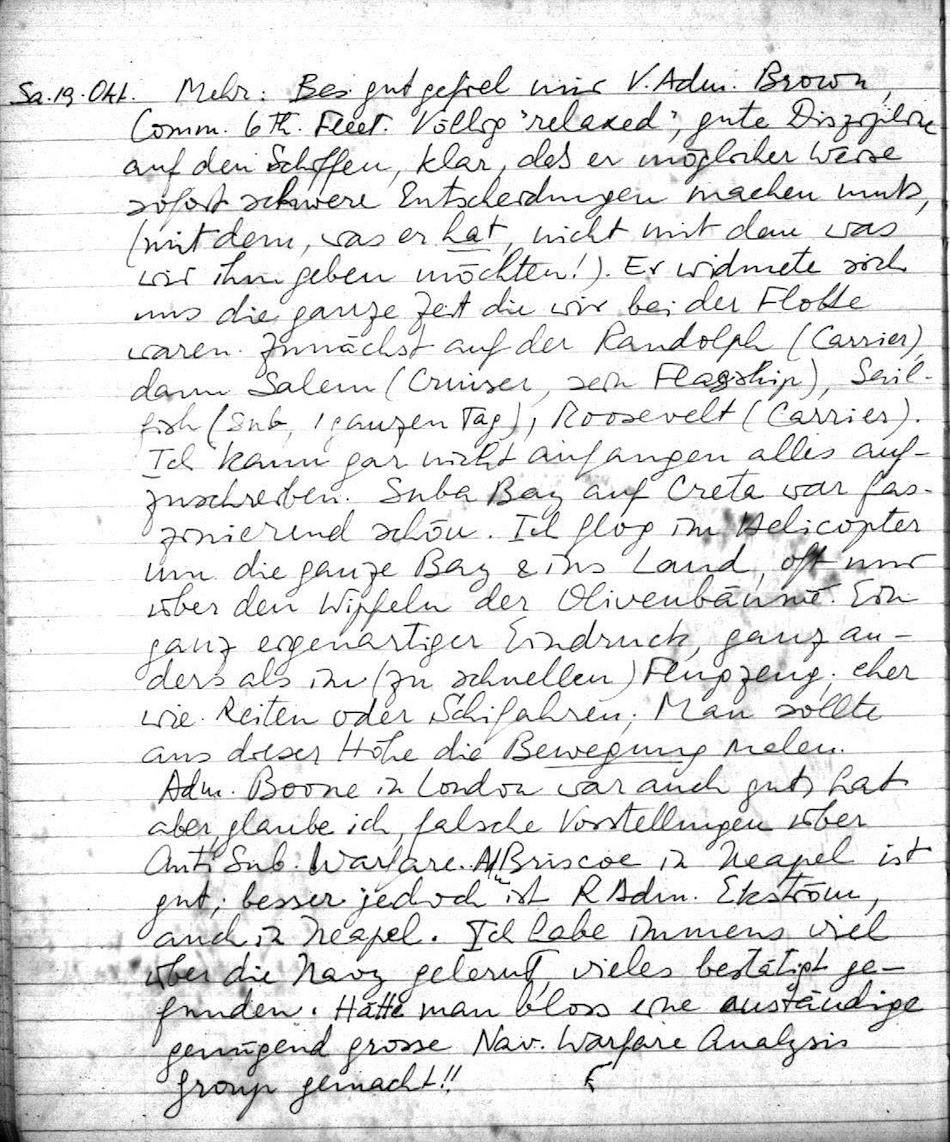 Sa. 19. Okt. Mehr: Bes. gut gefiel mir V. Adm. Brown,
Comm. 6th. Fleet. Völlig "relaxed", gute Disziplin
auf den Schiffen, klar, dass er möglicher Weise
sofort schwere Entscheidungen machen muss,
(mit dem, was er hat, nicht mit dem was
wir ihm geben möchten!). Er widmete sich
uns die ganze Zeit die wir bei der Flotte
waren. Zunächst auf der Randolph (Carrier),
dann Salem (Cruiser, sein Flagship), Sail-
fish (Sub, 1 ganzen Tag), Roosevelt (Carrier).
Ich kann gar nicht anfangen alles auf-
zuschreiben. Suba Bay auf Creta war fas-
zinierend schön. Ich flog im Helicopter
um die ganze Bay & ins Land, oft nur
über den Wipfeln der Olivenbäume. Ein
ganz eigenartiger Eindruck, ganz an-
ders als im (zu schnellen) Flugzeug, eher
wie Reiten oder Schifahren; Man sollte
aus dieser Höhe die Bewegung malen.
Adm. Boone in London war auch gut, hat
aber, glaube ich, falsche Vorstellungen über
Anti Sub. Warfare. Adm Briscoe in Neapel ist
gut; besser jedoch ist R Adm. Ekström,
auch in Neapel. Ich habe immens viel
über die Navy gelernt, vieles bestätigt ge-
funden. Hätte man bloss eine anständige
genügend grosse Nav. Warfare Analysis
Group gemacht!!